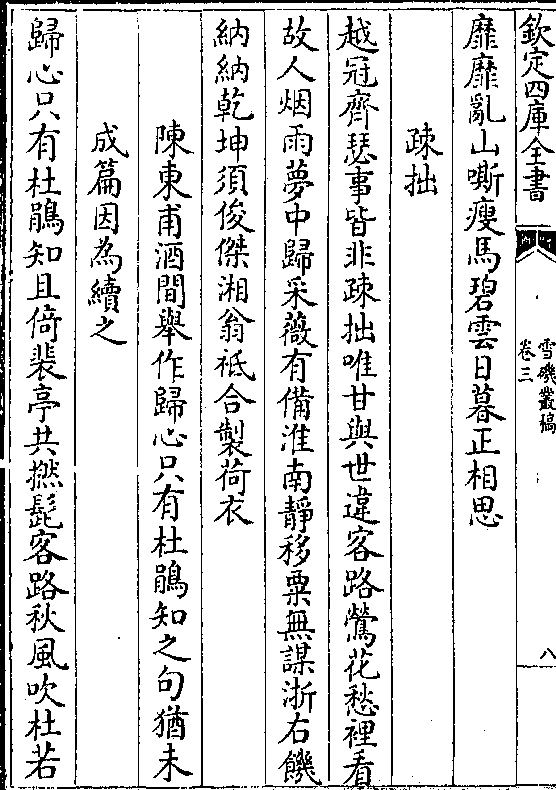 欽定四庫全書
雪磯叢稿
卷三
八
靡靡亂山嘶瘦馬碧雲日暮正相思
疎拙
越冠齊瑟事皆非疎拙唯甘與世違客路鶯花愁裡看
故人烟雨夢中歸采薇有備淮南靜移粟無謀浙右饑
納納乾坤須俊傑湘翁祗合製荷衣
陳東甫酒間舉作歸心只有杜鵑知之句猶未
成篇因為續之
歸心只有杜鵑知且倚裴亭共撚髭客路秋風吹杜若